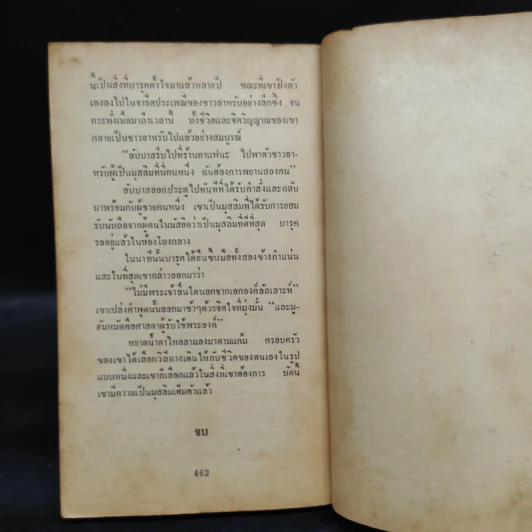 นี้เป็นสิ่งที่บารุคตั้งใจมาแล้วหลายปี ขณะที่เขาฝังตัว
เองลงไปในจารีตประเพณีของชาวอาหรับอย่างลึกซึ้ง จน
กระทั่งเมื่อมาถึงเวลานี้ ทั้งชีวิตและจิตวิญญาณของเขา
กลายเป็นชาวอาหรับไปแล้วอย่างสมบูรณ์
"อับบาสรีบไปที่ร้านกาแฟนะ ไปพาตัวชาวอา-
หรับผู้เป็นมุสลิมที่นี่คนหนึ่ง ฉันต้องการพยานสองคน"
อับบาสออกประตูไปทันทีที่ได้รับคำสั่งและกลับ
มาพร้อมกับผู้ชายคนหนึ่ง เขาเป็นมุสลิมที่ได้รับการยอม
รับนับถือจากผู้คนในมัสยิดว่าเป็นมุสลิมที่ดีที่สุด บารุค
รออยู่แล้วในห้องโถงกลาง
ในนาทีนั้นบารุคได้ยืนขึ้นมือทั้งสองข้างกำแน่น
และในที่สุดเขากล่าวออกมาว่า
"ไม่มีพระเจ้าอื่นใดนอกจากเอกองค์อัลเลาะห์"
เขาเปล่งคำพูดนั้นออกมาช้าๆด้วยจิตใจที่มุ่งมั่น "และมู-
ฮันหมัดคือศาสดาผู้รับใช้พระองค์"
หยาดน้ำตาไหลลามลงมาตามแก้ม ครอบครัว
ของเขาได้เลือกวิถีทางเดินให้กับชีวิตของตนเองในรูป
แบบหนึ่งและเขาก็เลือกแล้วในสิ่งที่เขาต้องการ บัดนี้
เขามีความเป็นมุสลิมเต็มตัวแล้ว
จบ
462